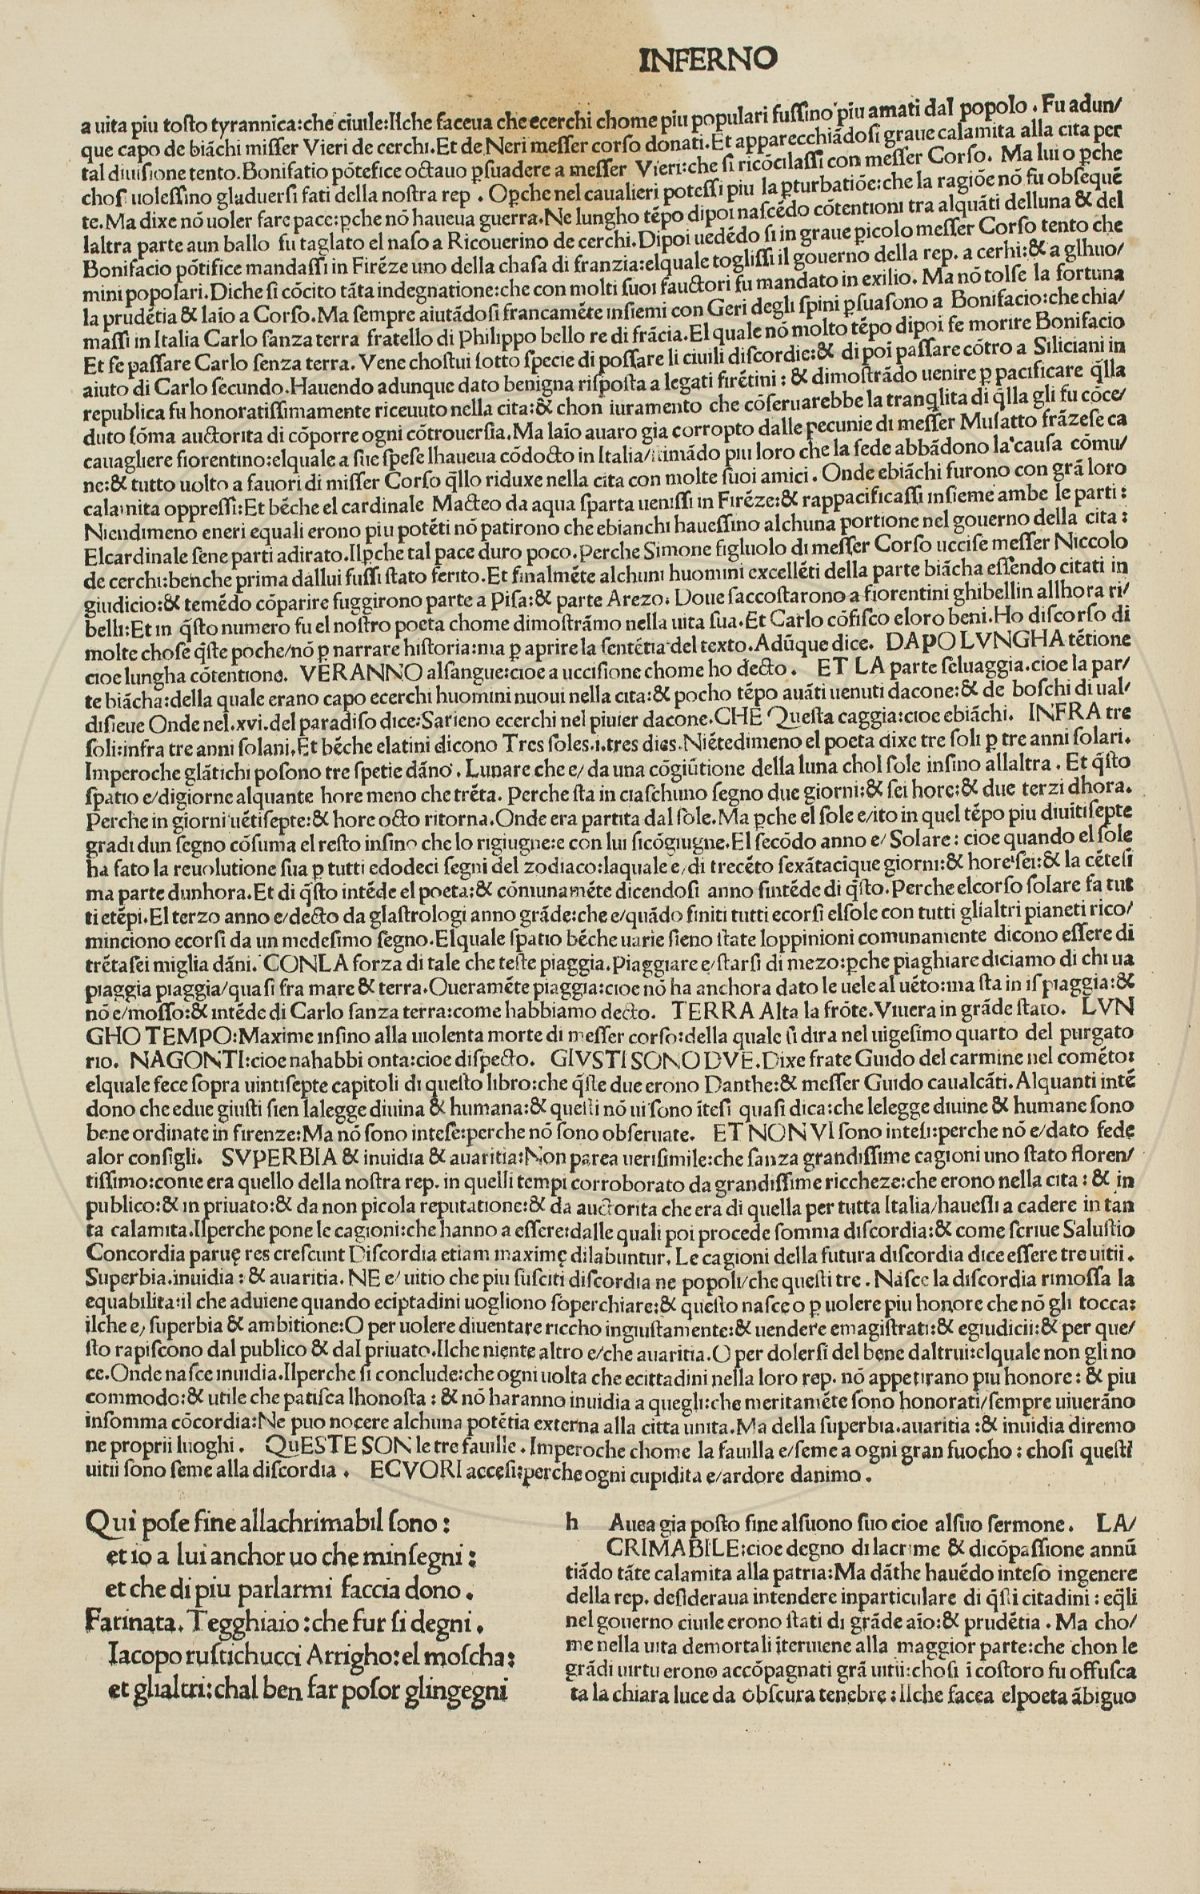 INFERNO
a uita piu tosto tyrannica:che ciuile:Ilche faceua che ecerchi chome piu populari fussino piu amati dal popolo . Fu adun/
que capo de biãchi misser Vieri de cerchi.Et de Neri messer corso donati.Et apparecchiãdosi graue calamita alla cita per
tal diuisione tento.Bonifatio põtefice octauo ꝑsuadere a messer Vieri:che si ricõcilassi con messer Corso. Ma lui o ꝑche
chosi uolessino gladuersi fati della nostra rep . Oꝑche nel caualieri potessi piu la ꝑturbatiõe:che la ragiõe nõ fu obsequẽ
te.Ma dixe nõ uoler fare pace:ꝑche nõ haueua guerra.Ne lungho tẽpo dipoi nascẽdo cõtentioni tra alquãti delluna & del
laltra parte aun ballo fu taglato el naso a Ricouerino de cerchi.Dipoi uedẽdo si in graue ꝑicolo messer Corso tento che
Bonifacio põtifice mandassi in Firẽze uno della chasa di franzia:elquale toglissi il gouerno della rep. a cerhi:& a glhuo/
mini popolari.Diche si cõcito tãta indegnatione:che con molti suoi fauctori fu mandato in exilio. Ma nõ tolse la fortuna
la prudẽtia & laio a Corso.Ma sempre aiutãdosi francamẽte insiemi con Geri degli spini ꝑsuasono a Bonifacio:che chia/
massi in Italia Carlo sanza terra fratello di Philippo bello re di frãcia.El quale nõ molto tẽpo dipoi fe morire Bonifacio
Et fe passare Carlo senza terra. Vene chostui sotto specie di possare li ciuili discordie:& di poi passare cõtro a Siliciani in
aiuto di Carlo secundo.Hauendo adunque dato benigna risposta a legati firẽtini : & dimostrãdo uenire ꝑ pacificare q̃lla
republica fu honoratissimamente riceuuto nella cita:& chon iuramento che cõseruarebbe la tranq̃lita di q̃lla gli fu cõce/
duto sõma auctorita di cõporre ogni cõtrouersia.Ma laio auaro gia corropto dalle pecunie di messer Musatto frãzese ca
cauagliere fiorentino:elquale a sue spese lhaueua cõdocto in Italia/stimãdo piu loro che la fede abbãdono la causa cõmu/
ne:& tutto uolto a fauori di misser Corso q̃llo riduxe nella cita con molte suoi amici . Onde ebiãchi furono con grã loro
calamita oppressi:Et bẽche el cardinale Macteo da aqua sparta uenissi in Firẽze:& rappacificassi insieme ambe le parti :
Niendimeno eneri equali erono piu potẽti nõ patirono che ebianchi hauessino alchuna portione nel gouerno della cita :
Elcardinale sene parti adirato.Ilꝑche tal pace duro poco.Perche Simone figluolo di messer Corso uccise messer Niccolo
de cerchi:benche prima dallui fussi stato ferito.Et finalmẽte alchuni huomini excellẽti della parte biãcha essendo citati in
giudicio:& temẽdo cõparire fuggirono parte a Pisa:& parte Arezo. Doue saccostarono a fiorentini ghibellin allhora ri/
belli:Et in q̃sto numero fu el nostro poeta chome dimostrãmo nella uita sua.Et Carlo cõfisco eloro beni.Ho discorso di
molte chose q̃ste poche/nõ ꝑ narrare historia:ma ꝑ aprire la sentẽtia del texto.Adũque dice. DAPO LVNGHA tẽtione
cioe lungha cõtentione. VERANNO alsangue:cioe a uccisione chome ho decto . ET LA parte seluaggia.cioe la par/
te biãcha:della quale erano capo ecerchi huomini nuoui nella cita:& pocho tẽpo auãti uenuti dacone:& de boschi di ual/
disieue Onde nel.xvi.del paradiso dice:Sarieno ecerchi nel piuier dacone.CHE Questa caggia:cioe ebiãchi. INFRA tre
soli:infra tre anni solani.Et bẽche elatini dicono Tres soles.i.tres dies.Niẽtedimeno el poeta dixe tre soli ꝑ tre anni solari.
Imperoche glãtichi posono tre spetie dãno . Lunare che e/ da una cõgiũtione della luna chol sole insino allaltra . Et q̃sto
spatio e/digiorne alquante hore meno che trẽta. Perche sta in ciaschuno segno due giorni:& sei hore:& due terzi dhora.
Perche in giorni uẽtisepte:& hore octo ritorna.Onde era partita dal sole. Ma ꝑche el sole e/ito in quel tẽpo piu diuitisepte
gradi dun segno cõsuma el resto insino che lo rigiugne:e con lui sicõgiugne.El secõdo anno e/ Solare : cioe quando el sole
ha fato la reuolutione sua ꝑ tutti edodeci segni del zodiaco:laquale e/ di trecẽto sexãtacĩque giorni:& hore sei:& la cẽtesi
ma parte dunhora.Et di q̃sto intẽde el poeta:& cõmunamẽte dicendosi anno sintẽde di q̃sto.Perche elcorso solare fa tut
ti etẽpi.El terzo anno e/decto da glastrologi anno grãde:che e/quãdo finiti tutti ecorsi elsole con tutti glialtri pianeti rico/
minciono ecorsi da un medesimo segno.Elquale spatio bẽche uarie sieno state loppinioni comunamente dicono essere di
trẽtasei miglia dãni. CONLA forza di tale che teste piaggia.Piaggiare e/starsi di mezo:ꝑche piaghiare diciamo di chi ua
piaggia piaggia/quasi fra mare & terra.Oueramẽte piaggia:cioe nõ ha anchora dato le uele al uẽto:ma sta in is piaggia:&
nõ e/mosso:& intẽde di Carlo sanza terra:come habbiamo decto. TERRA Alta la frõte.Viuera in grãde stato. LVN
GHO TEMPO:Maxime insino alla uiolenta morte di messer corso:della quale si dira nel uigesimo quarto del purgato
rio. NAGONTI:cioe nahabbi onta:cioe dispecto. GIVSTI SONO DVE.Dixe frate Guido del carmine nel comẽto:
elquale fece sopra uintisepte capitoli di questo libro:che q̃ste due erono Danthe:& messer Guido caualcãti.Alquanti intẽ
dono che edue giusti sien lalegge diuina & humana:& quelli nõ ui sono ĩtesi quasi dica:che lelegge diuine & humane sono
bene ordinate in firenze:Ma nõ sono intese:perche nõ sono obseruate. ET NON VI sono intesi:perche nõ e/dato fede
alor consigli. SVPERBIA & inuidia & auaritia:Non parea uerisimile:che sanza grandissime cagioni uno stato floren/
tissimo:come era quello della nostra rep. in quelli tempi corroborato da grandissime riccheze:che erono nella cita : & in
publico:& in priuato:& da non picola reputatione:& da auctorita che era di quella per tutta Italia/hauessi a cadere in tan
ta calamita.Ilperche pone le cagioni:che hanno a essere:dalle quali poi procede somma discordia:& come scriue Salustio
Concordia paruę res crescunt Discordia etiam maximę dilabuntur. Le cagioni della futura discordia dice essere tre uitii .
Superbia.inuidia : & auaritia. NE e/ uitio che piu susciti discordia ne popoli/che questi tre . Nasce la discordia rimossa la
equabilita:il che aduiene quando eciptadini uogliono soperchiare:& questo nasce o ꝑ uolere piu honore che nõ gli tocca:
ilche e/ superbia & ambitione:O per uolere diuentare riccho ingiustamente:& uendere emagistrati:& egiudicii:& per que/
sto rapiscono dal publico & dal priuato.Ilche niente altro e/che auaritia.O per dolersi del bene daltrui:elquale non gli no
ce.Onde nasce inuidia.Ilperche si conclude:che ogni uolta che ecittadini nella loro rep. nõ appetirano piu honore : & piu
commodo:& utile che patisca lhonosta : & nõ haranno inuidia a quegli:che meritamẽte sono honorati/sempre uiuerãno
insomma cõcordia:Ne puo nocere alchuna potẽtia externa alla citta unita.Ma della superbia.auaritia :& inuidia diremo
ne proprii luoghi . QuESTE SON le tre fauille . Imperoche chome la fauilla e/seme a ogni gran fuocho : chosi questi
uitii sono seme alla discordia . ECVORI accesi:perche ogni cupidita e/ardore danimo .
Qui pose fine allachrimabil sono :
et io a lui anchor uo che minsegni :
et che di piu parlarmi faccia dono .
Farinata. Tegghiaio : che fur si degni .
Iacopo rustichucci Arrigho: el moscha:
et glialtri: chal ben far posor glingegni
h Auea gia posto fine alsuono suo cioe alsuo sermone. LA/
CRIMABILE:cioe degno di lacrime & dicõpassione annũ
tiãdo tãte calamita alla patria:Ma dãthe hauẽdo inteso ingenere
della rep. desideraua intendere inparticulare di q̃sti citadini : eq̃li
nel gouerno ciuile erono stati di grãde aio:& prudẽtia . Ma cho/
me nella uita demortali ĩteruiene alla maggior parte:che chon le
grãdi uirtu erono accõpagnati grã uitii:chosi ĩ costoro fu offusca
ta la chiara luce da obscura tenebre : ilche facea elpoeta ãbiguo